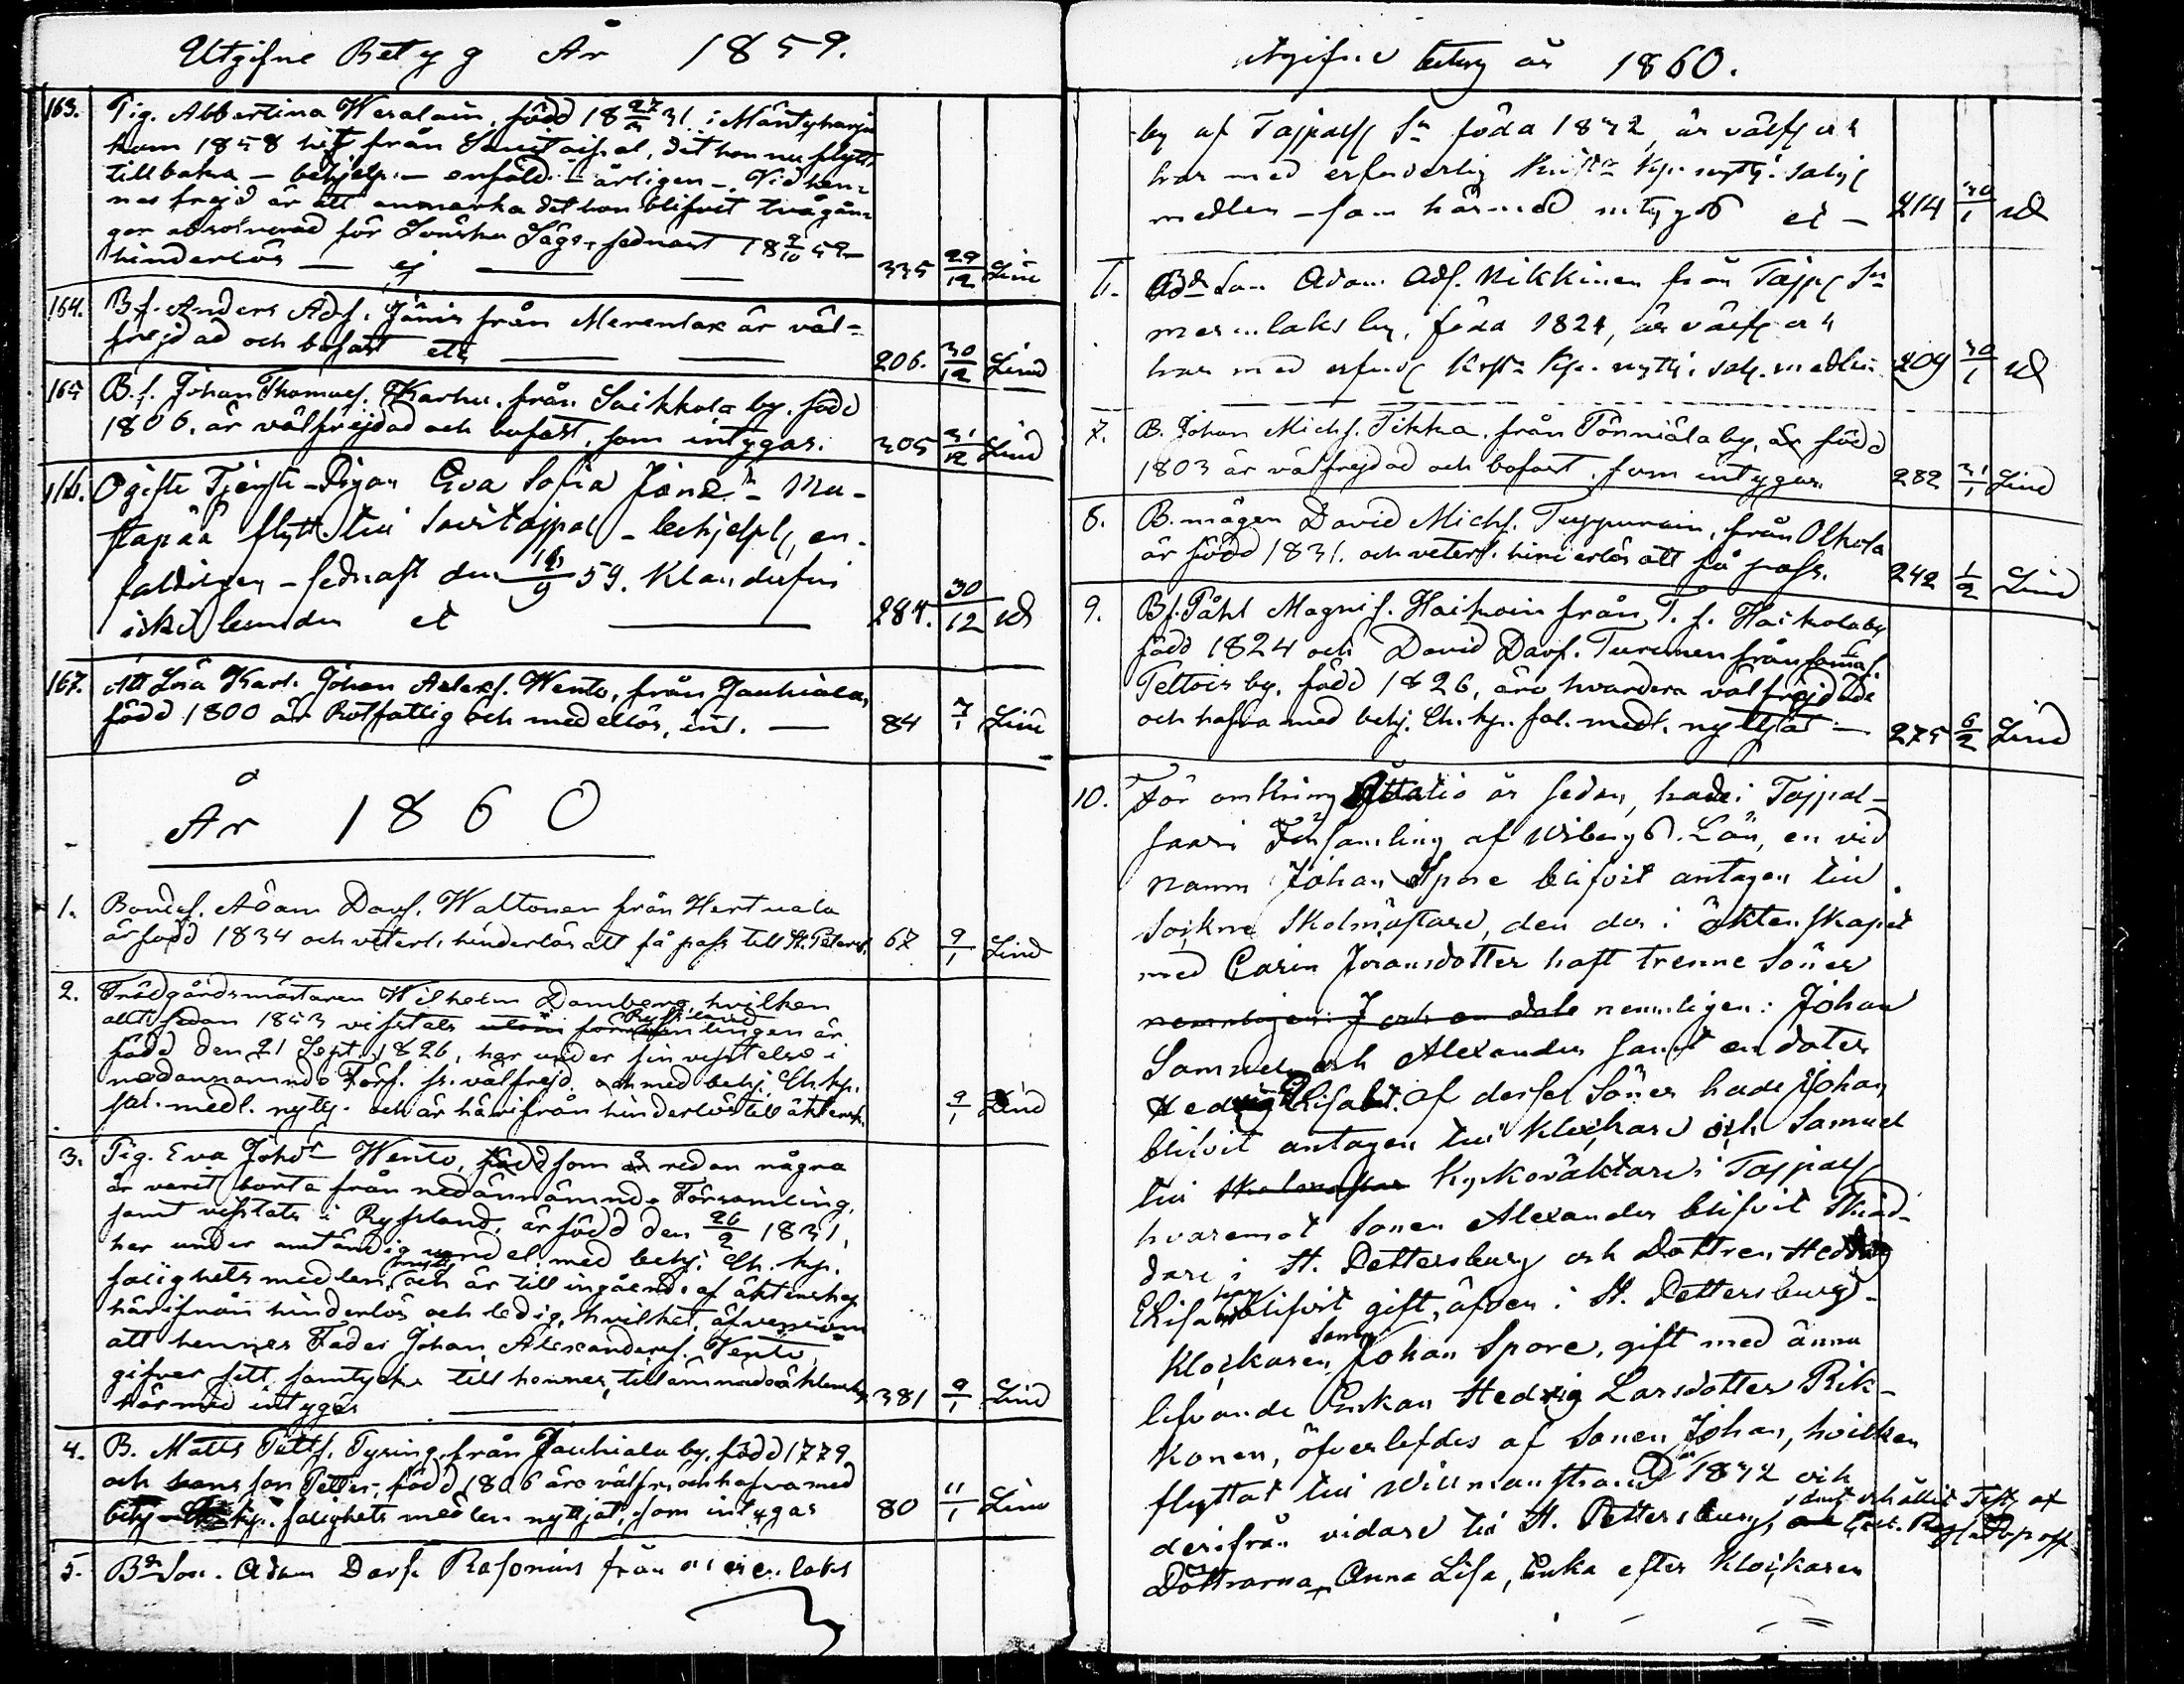 Utgifne Betyg År 1859.
163. Pig. Albertina Wesalain, född 18 27/3 31 i Mäntyharju
kom 1858 hit från Savitaipal, dit hon nu flytt.
tillbaka — behjelp. — enfald. — ärligen —. Vid hen-
nes frejd är att anmärka det hon blifvit två gån-
ger absolverad för Lönska Läges, sednast 18 9/10 59 —
hinderlös — ej — — 335 29/12 Lind
164. B.s. Anders Ads. Jänis från Merenlax är väl-
frejdad och bofast etc — — 206. 30/12 Lind
165 B.s. Johan Thomass. Karhu, från Saikkola by, född
1806. är välfrejdad och bofast, som intygas. 305 31/12 Lind
166. Ogifte Tjenste-Pigan Eva Sofia Jöns
flytt. till Savitajpal — behjelpl, en-
faldigen — sednast den 18/9 59.
et — 284. 30/12
167. Att Lösa Karl. Johan Alexs. Wento, från Jauhiala,
född 1800 är Rotfattig och medellös, int. — 84 7/1 Lind
År 1860
1. Bondes. Adam Davs. Waltonen från Hertuala
är född 1834 och veterl. hinderlös att få pass till St. Petersb. 67 9/1 Lind
2. Trädgårdsmästaren Wilhelm Damberg, hvilken
allt sedan 1853 vistats Ryssland är
född den 21 Sept. 1826, har under sin vistelse i
nedannämnde Förs. fr. välfrejd. och med behj. Ch. kp.
sal. medl. nyttj. och är härifrån hinderlös till äktensk. 9/1 Lind
3. Pig. Eva Johdr Wento, född som är redan några
år varit borta från nedannämnde Församling,
samt vistats i Ryssland, är född den 26/2 1831,
har under anständig vandel med behj. Ch. kp.
salighets medlen nyttj. och är till ingående af äktenskap
härifrån hinderlös och ledig, hvilket, äfvensom
att hennes Fader Johan Alexanders. Vento
gifver sitt samtycke till hennes tillämnade äktenskap
härmed intygas — 381 9/1 Lind
4. B. Matts Pålls. Tyring, från Jauhiala by, född 1779
och hans son Petter, född 1806 äro välfr. och hafva med
behj. Ch. kp. salighets medlen nyttjat, som intygas 80 11/1 Lind
5. Bd Son. Adam Davs. Rasonius från laks
Utgifne betyg år 1860.
by af Tajpals. Sn föda 1832, är välfr och
har med erforderlig Krist. kp. nyttj. salig
medlen — som härmed intygas et — 214 30/1
6. Bd Son Adam Ads. Nikkinen från Tajp. Sn
laks by, föda 1824, är välfr och
har med erford. Krist. kp. nyttj. salig. medlen 209 30/1
7. B. Johan Michs. Tikka, från Pönniälä by, är född
1803 är välfrejdad och bofast, som intygas. 282 31/1 Lind
8. B. mågen David Michs. Tuppurain, från Olkola
är född 1831. och veterl. hinderlös att få pass. 242 1/2 Lind
9. B.s. Påhl Magnis. Haikoin från T. s. Haikola by
född 1824 och David Davs. Turunen från samma s.
Teltois by, född 1826, äro hvardera välfrejdade
och hafva med behj. Ch. kp. sal. medl. nyttjat — 275 6/2 Lind
10. För omkring Åttatio år sedan, hade i Tajpal-
saari Församling af Wiborgs Län, en vid
namn Johan Spore blifvit antagen till
Sockne Skolmästare, den der i äktenskapet
med Carin Jöransdotter haft trenne Söner
nemligen: Johan
Samuel och Alexander samt en doter
Hedvig Elisabet. Af dessa Söner hade Johan
blifvit antagen till Klockare och Samuel
till Kyrkoväktare i Tajpals.
hvaremot Sonen Alexander blifvit Skräd-
dare i St. Pettersburg och Dottren Hedvig
Elisa blifvit gift, äfven i St. Pettersburg.
Klockaren Johan Spore, gift med ännu
lefvande Enkan Hedvig Larsdotter Rik-
konen, öfverlefdes af Sonen Johan, hvilken
flyttat till Willmanstrand år 1842 och
derifrån vidare till St. Pettersburg,
Döttrarna Anna Lisa, Enka efter Klockaren